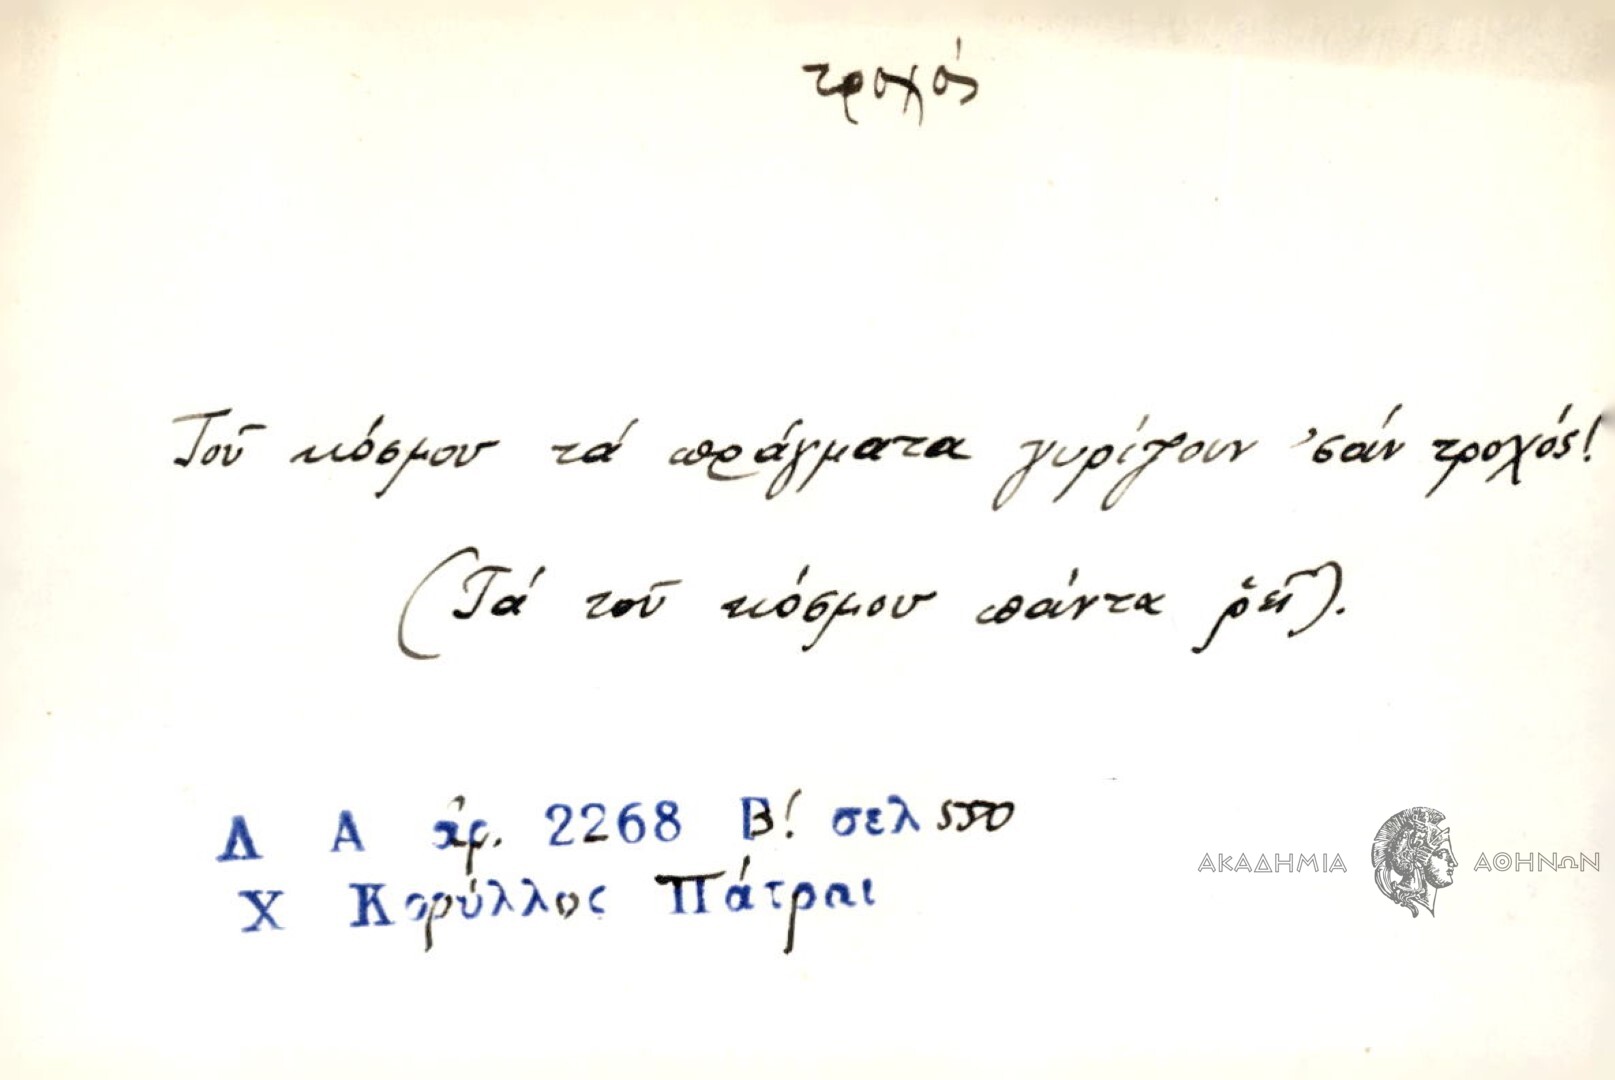 τροχός
Τοῦ κόσμου τά πράγματα γυρίζουν 'σάν τροχός!
(Τά τοῦ κόσμου πάντα ῥεῖ).
Λ Α ἀρ. 2268 Β! σελ 550
Χ Κορύλλος Πάτραι
ΑΚΑΔΗΜΙΑ ΑΘΗΝΩΝ